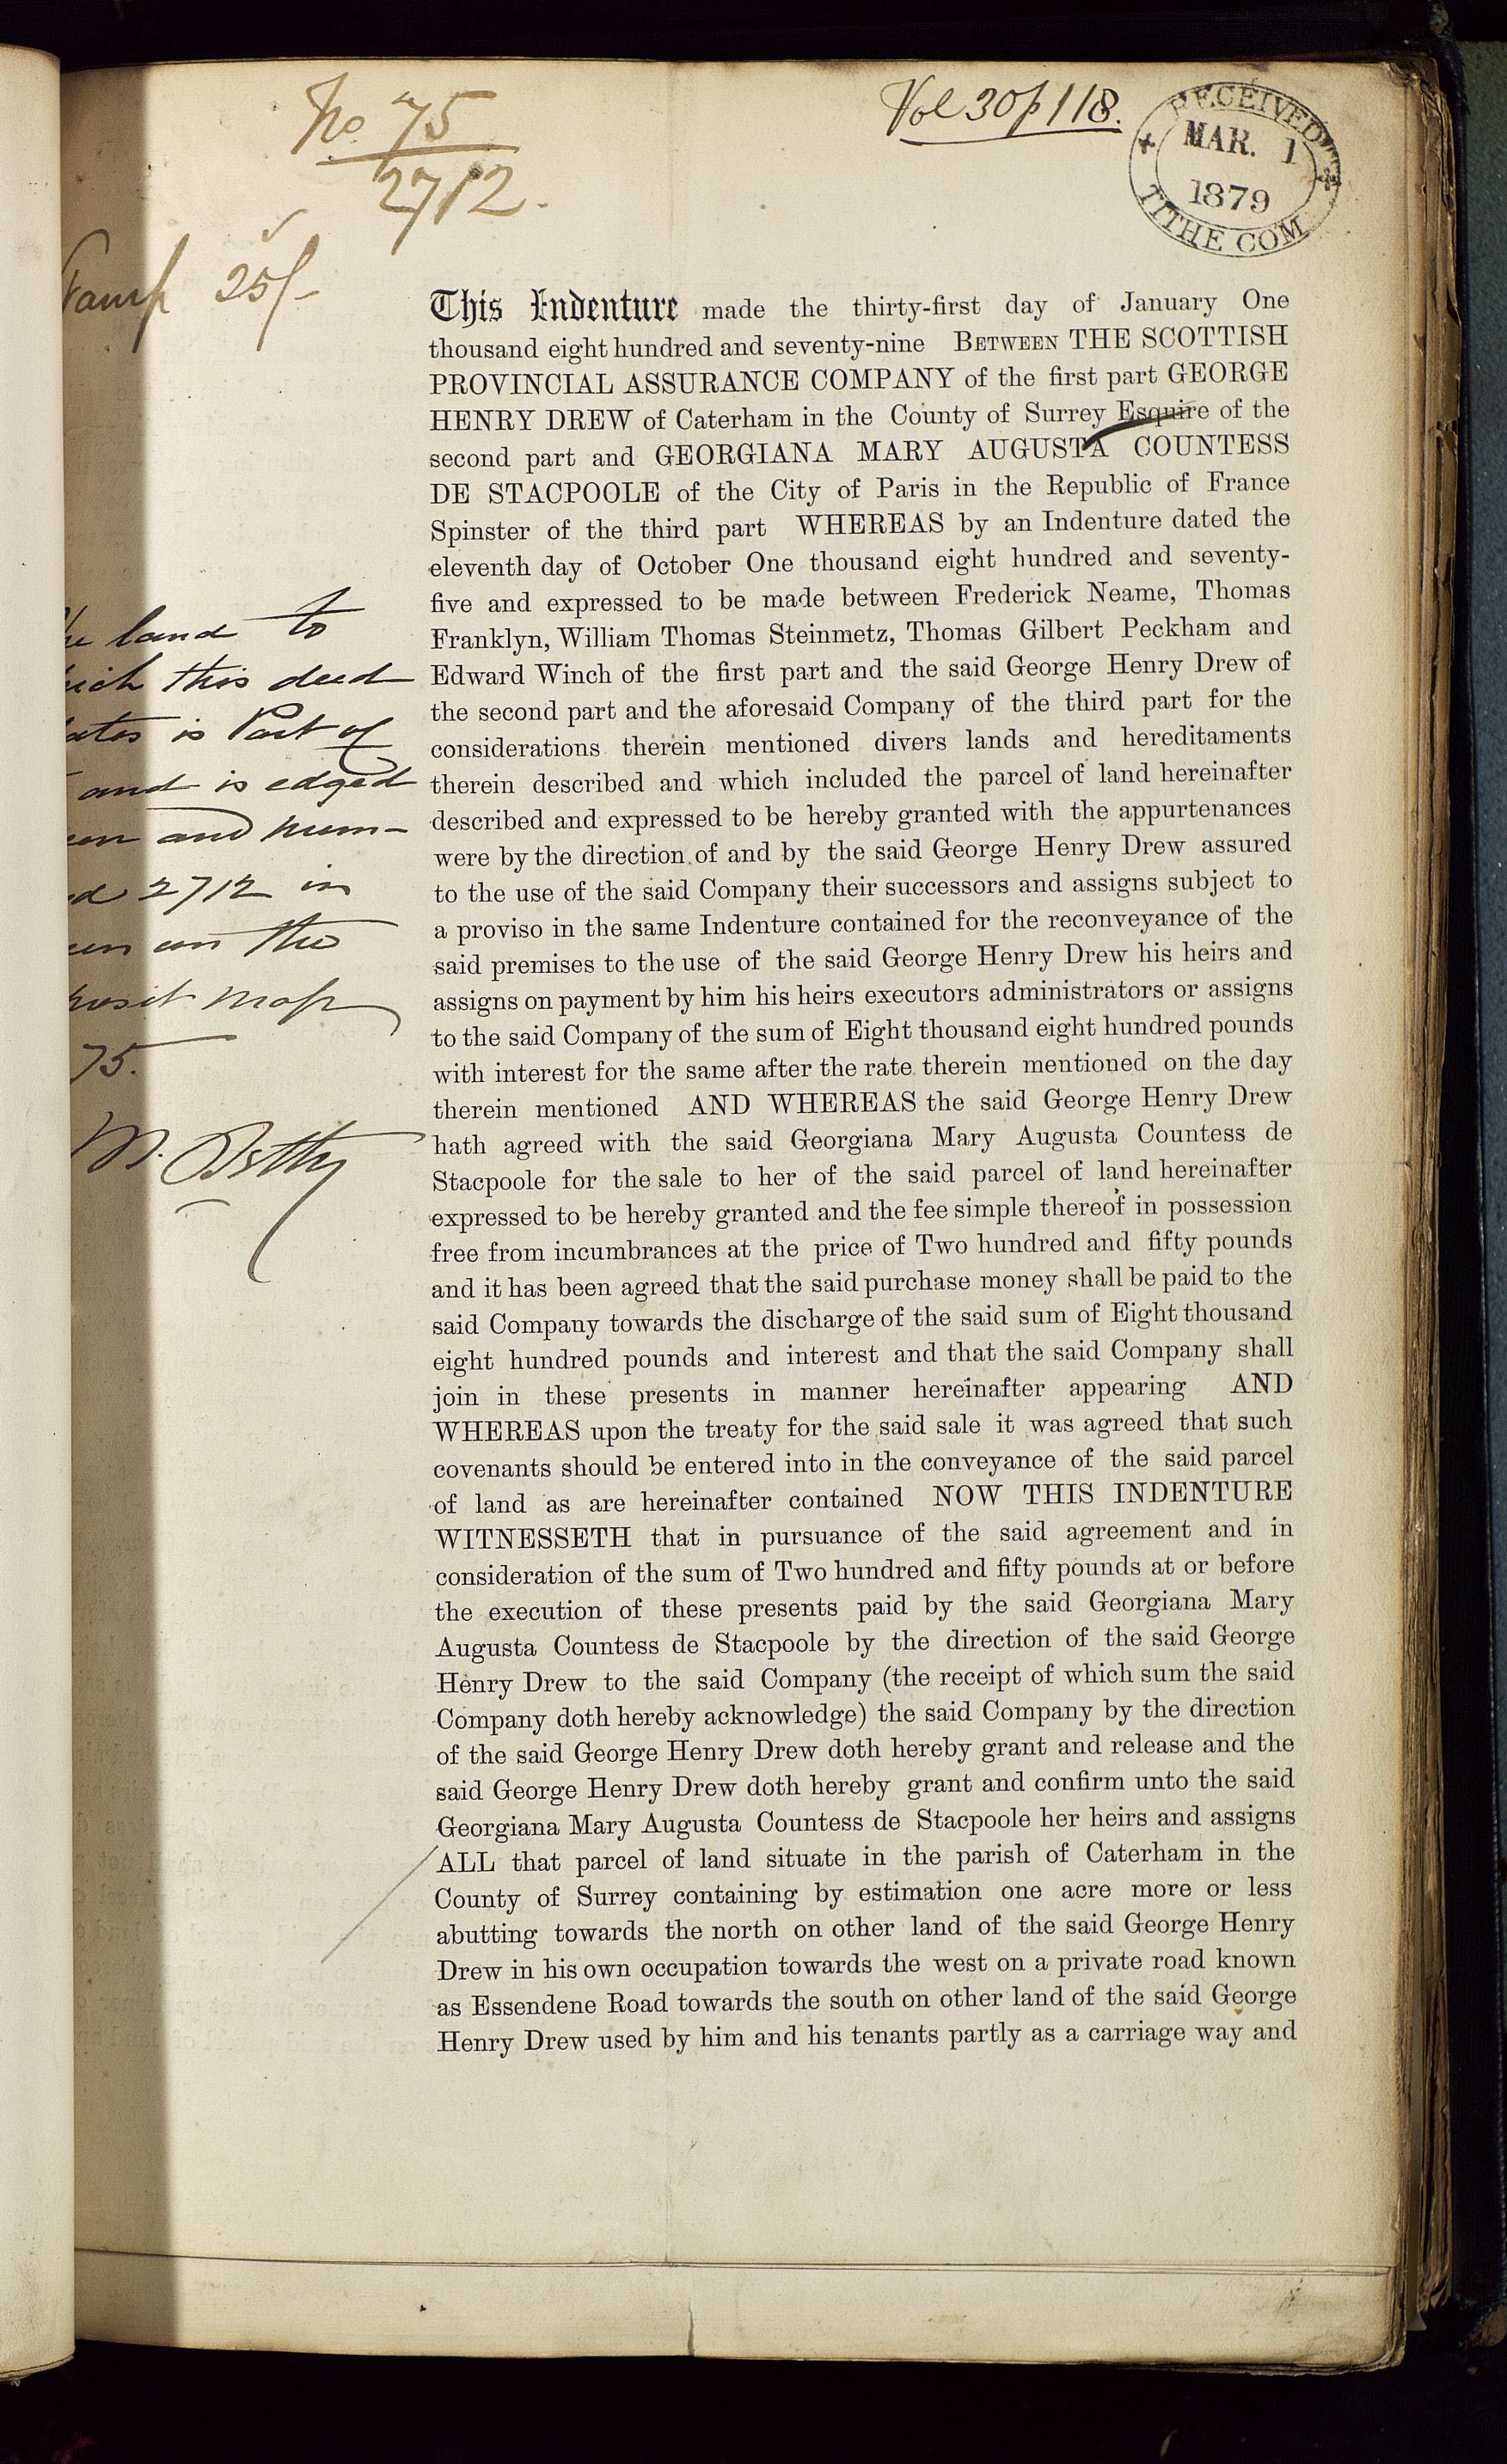 No. 75
2712.
Vol 30 p 118.
RECEIVED
MAR. 1
1879
TITHE COM
25/-
This Indenture made the thirty-first day of January One
thousand eight hundred and seventy-nine BETWEEN THE SCOTTISH
PROVINCIAL ASSURANCE COMPANY of the first part GEORGE
HENRY DREW of Caterham in the County of Surrey Esquire of the
second part and GEORGIANA MARY AUGUSTA COUNTESS
DE STACPOOLE of the City of Paris in the Republic of France
Spinster of the third part WHEREAS by an Indenture dated the
eleventh day of October One thousand eight hundred and seventy-
five and expressed to be made between Frederick Neame, Thomas
Franklyn, William Thomas Steinmetz, Thomas Gilbert Peckham and
Edward Winch of the first part and the said George Henry Drew of
the second part and the aforesaid Company of the third part for the
considerations therein mentioned divers lands and hereditaments
therein described and which included the parcel of land hereinafter
described and expressed to be hereby granted with the appurtenances
were by the direction of and by the said George Henry Drew assured
to the use of the said Company their successors and assigns subject to
a proviso in the same Indenture contained for the reconveyance of the
said premises to the use of the said George Henry Drew his heirs and
assigns on payment by him his heirs executors administrators or assigns
to the said Company of the sum of Eight thousand eight hundred pounds
with interest for the same after the rate therein mentioned on the day
therein mentioned AND WHEREAS the said George Henry Drew
hath agreed with the said Georgiana Mary Augusta Countess de
Stacpoole for the sale to her of the said parcel of land hereinafter
expressed to be hereby granted and the fee simple thereof in possession
free from incumbrances at the price of Two hundred and fifty pounds
and it has been agreed that the said purchase money shall be paid to the
said Company towards the discharge of the said sum of Eight thousand
eight hundred pounds and interest and that the said Company shall
join in these presents in manner hereinafter appearing AND
WHEREAS upon the treaty for the said sale it was agreed that such
covenants should be entered into in the conveyance of the said parcel
of land as are hereinafter contained NOW THIS INDENTURE
WITNESSETH that in pursuance of the said agreement and in
consideration of the sum of Two hundred and fifty pounds at or before
the execution of these presents paid by the said Georgiana Mary
Augusta Countess de Stacpoole by the direction of the said George
Henry Drew to the said Company (the receipt of which sum the said
Company doth hereby acknowledge) the said Company by the direction
of the said George Henry Drew doth hereby grant and release and the
said George Henry Drew doth hereby grant and confirm unto the said
Georgiana Mary Augusta Countess de Stacpoole her heirs and assigns
ALL that parcel of land situate in the parish of Caterham in the
County of Surrey containing by estimation one acre more or less
abutting towards the north on other land of the said George Henry
Drew in his own occupation towards the west on a private road known
as Essendene Road towards the south on other land of the said George
Henry Drew used by him and his tenants partly as a carriage way and
land to
this deed
is Part of
and is edged
and num-
2712 in
on the
map
75.